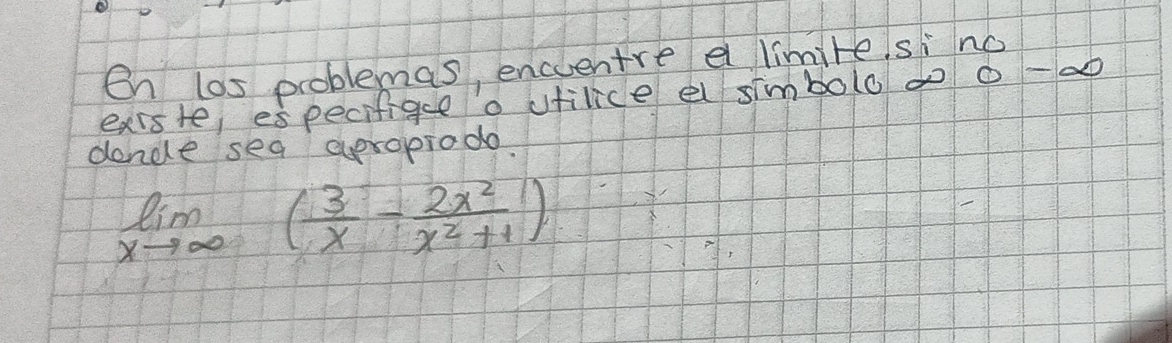 En los problemas, encuentre el limite, si no
existe, especifique o utilice el simbolo ∞ o -∞
donde sea apropiado.
lim x→∞ (3/x - 2x²/x²+1)